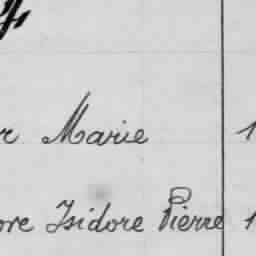 r Marie 1
ore Isidore Pierre 1